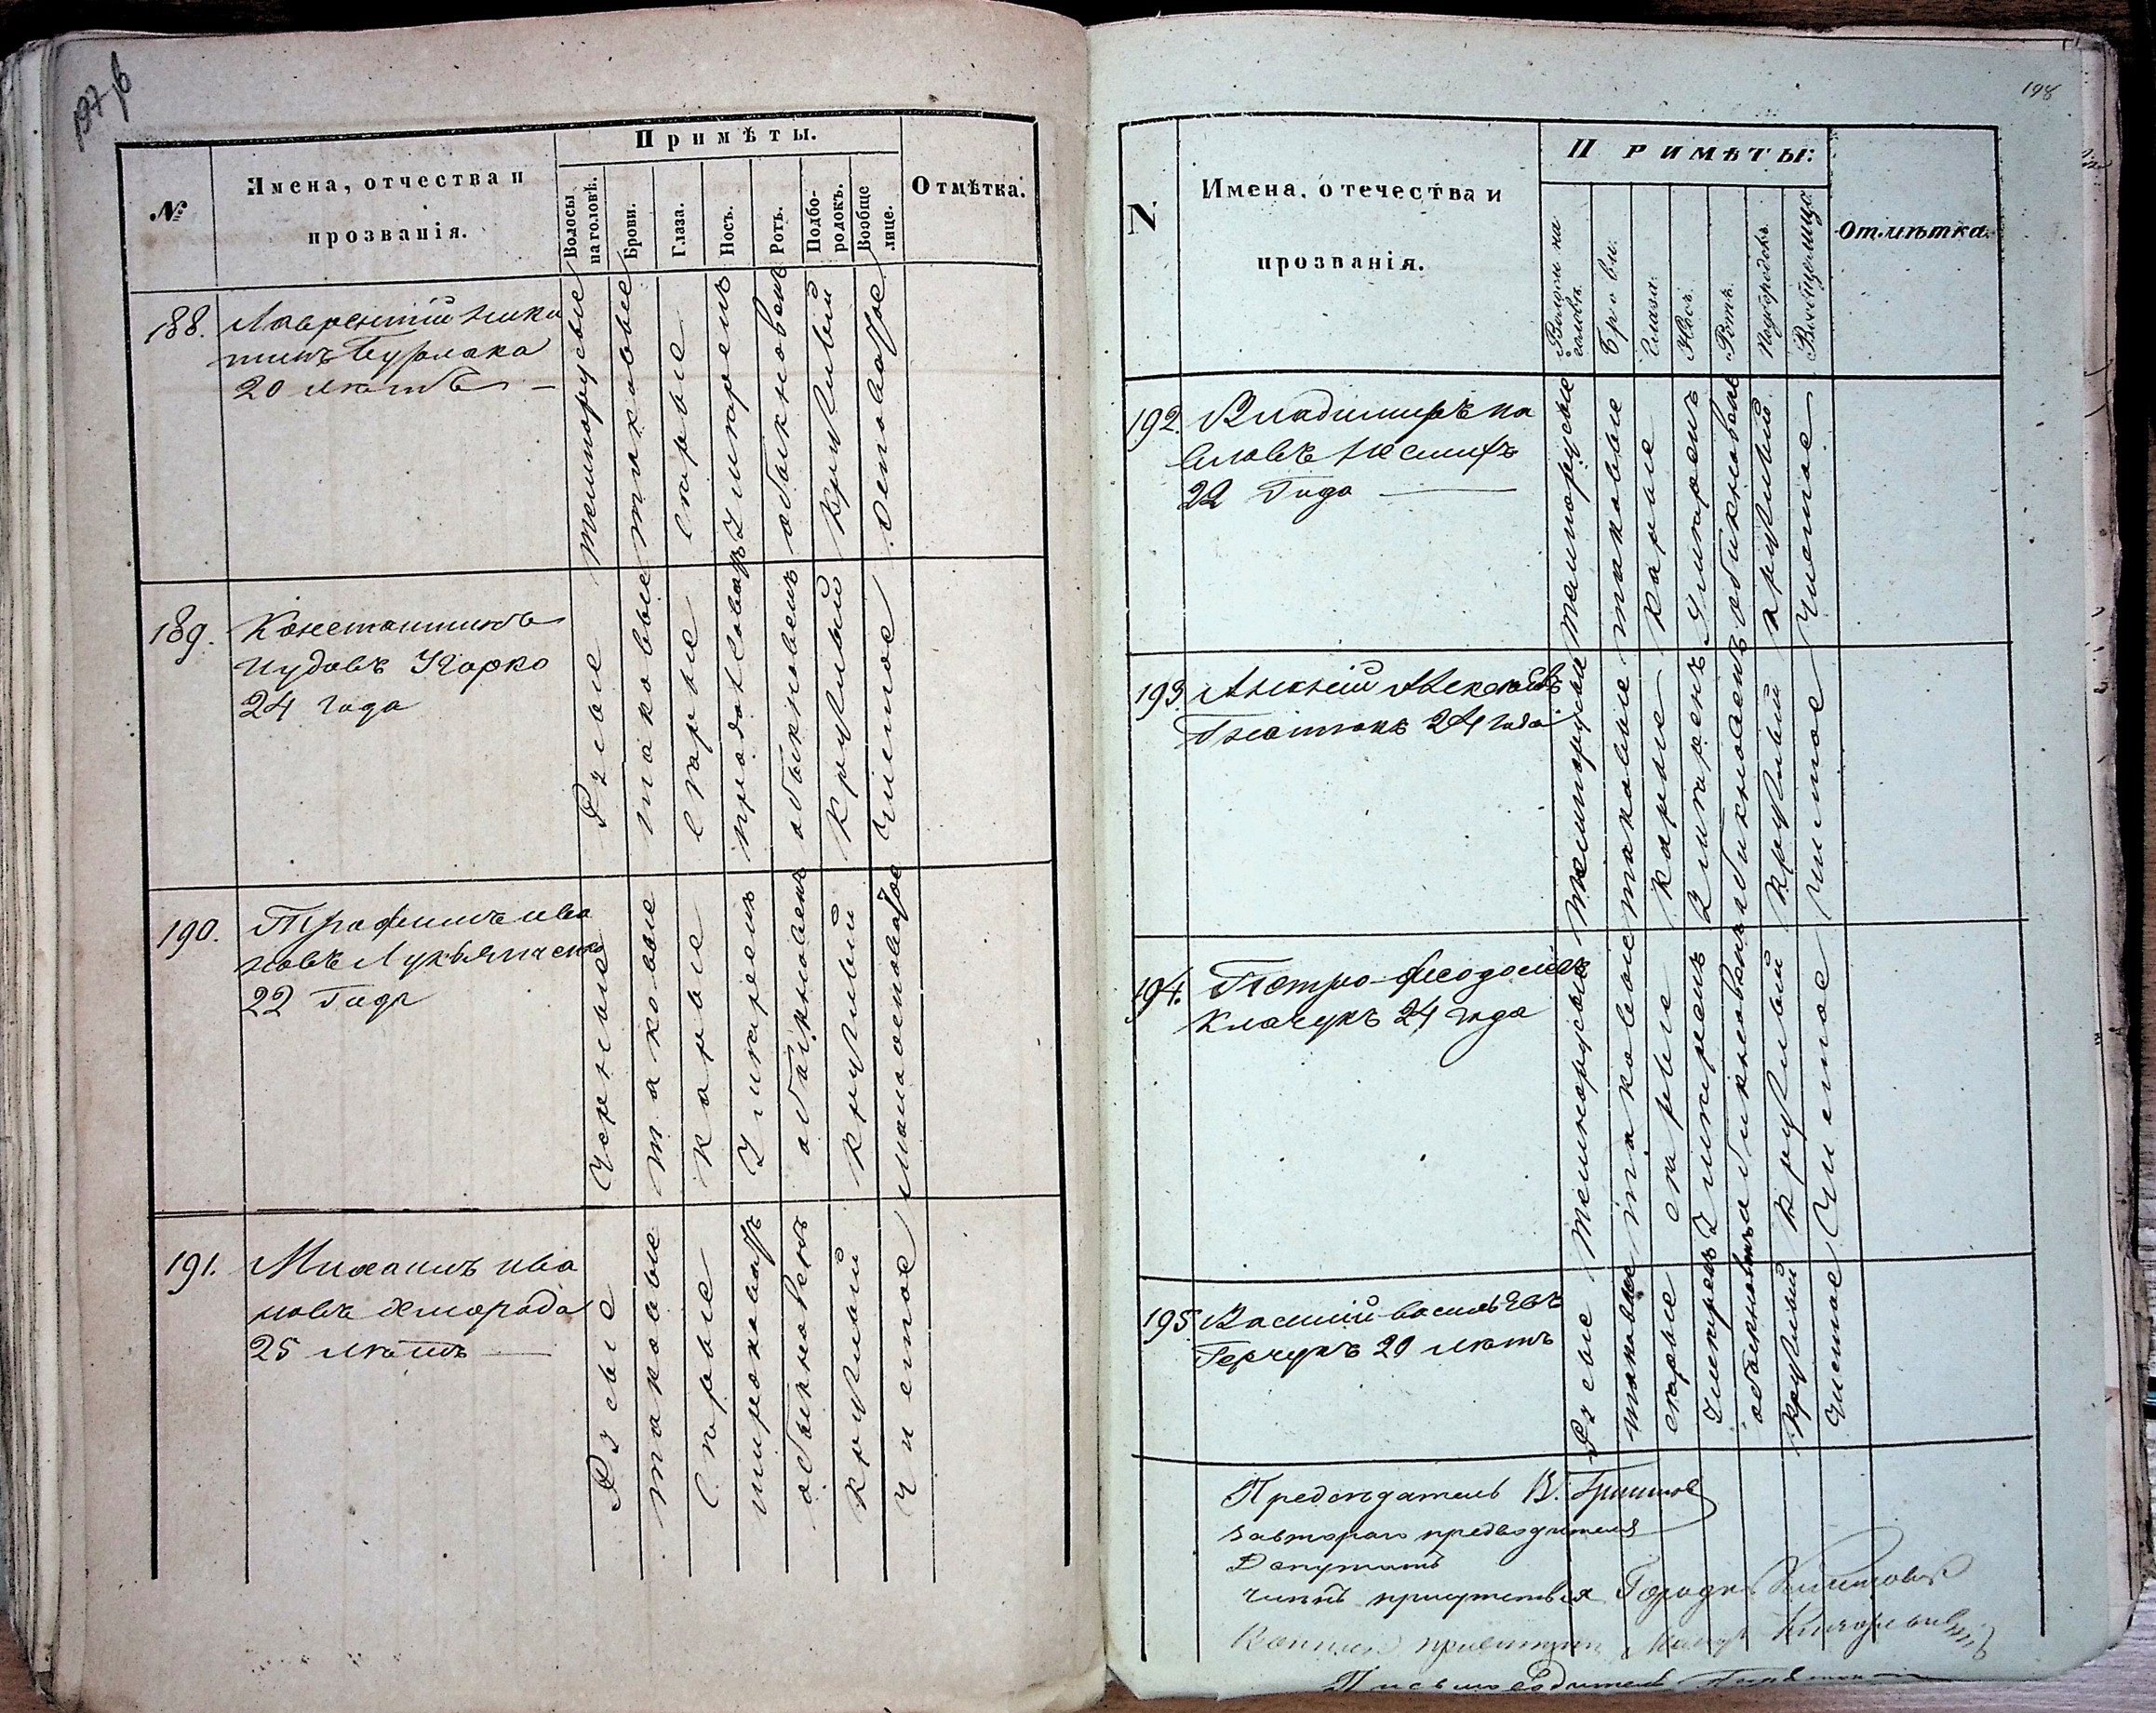 197 об
№
Имена, отчества и
прозванія.
Примѣты.
Волосы
на головѣ.
Брови.
Глаза.
Носъ.
Ротъ.
Подбо-
родокъ.
Вообще
лице.
Отмѣтка.
188.
Лаврентій Ники
тинъ Бурлака
20 лѣтъ
темнорусые
таковые
сѣрые
Умѣренъ
обыкновенъ
круглый
189.
Константинъ
Иудовъ
24 года
Русые
таковые
сѣрые
обыкновенъ
круглый
Чистое
190.
Трофимъ Ива
новъ Лукьяненко
22 Года
Черные
таковые
карые
Умѣренъ
обыкновенъ
круглый
191.
Михаилъ Ива
новъ
25 лѣтъ
Русые
таковые
Сѣрые
широковатъ
обыкновенъ
круглый
Чистое
198
N.
Имена, отечества и
прозванія.
Примѣты:
Волосы на
головѣ.
Брови.
Глаза.
Носъ.
Ротъ.
Подбородокъ.
Вообще лице
Отмѣтка.
192.
Владимиръ Па
вловъ
22 Года
темнорусые
таковые
карые
Умѣренъ
обикновенъ
круглый
Чистое
193.
Алексѣй Алексѣевъ
24 года
темнорусые
таковые
карые
Умѣренъ
обикновенъ
круглый
чистое
194.
Петро Феодосіевъ
Клачукъ 24 года
темнорусые
таковые
сѣрые
Умѣренъ
обикновенъ
круглый
Чистое
195
Василій Васильевъ
Герчукъ 20 лѣтъ
Русые
таковые
сѣрые
Умѣренъ
обыкновенъ
круглый
Чистое
Предсѣдатель В.
предводителя
Депутатъ
присутствія
Письмоводитель